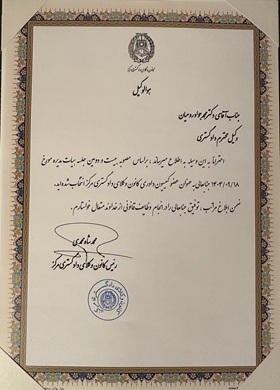 هوالوکیل
جناب آقای دکتر محمدجواد روحیان
وکیل محترم دادگستری
احتراماً به این وسیله به اطلاع میرساند ، براساس مصوبه بیست و دومین جلسه هیات مدیره مورخ
۱۴۰۳/۰۹/۱۸ جنابعالی به عنوان عضو کمیسیون داوری کانون وکلای دادگستری مرکز انتخاب شده‌اید.
ضمن ابلاغ مراتب ، توفیق جنابعالی را در انجام وظایف قانونی از خداوند متعال خواستارم.
رئیس کانون وکلای دادگستری مرکز